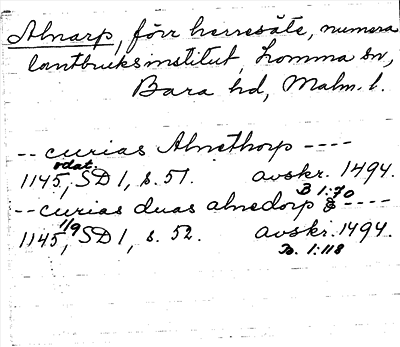 Alnarp, förr herresäte, numera
lantbruksinstitut, Lomma sn,
Bara hd, Malm. l.
-- curias Alnethorp ----
odat.
1145, SD 1, s. 51. avskr. 1494.
B 1:70
-- curias duas alnedorp ----
1/9
1145, SD 1, s. 52. avskr. 1494.
B. 1:118